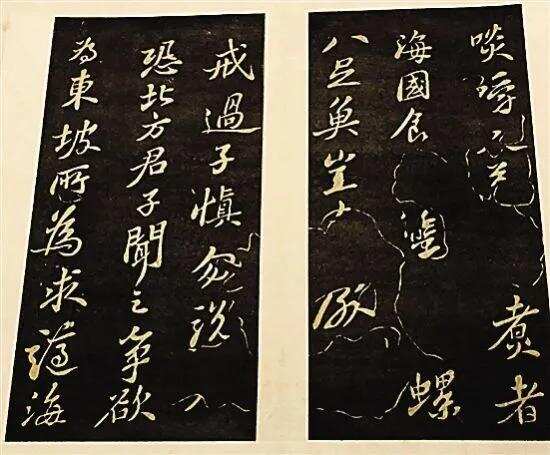 啖嚼又煮者
海國食蟹螺
八足魚豈
戒過子慎勿說
恐北方君子聞之爭欲
為東坡所為求謫海